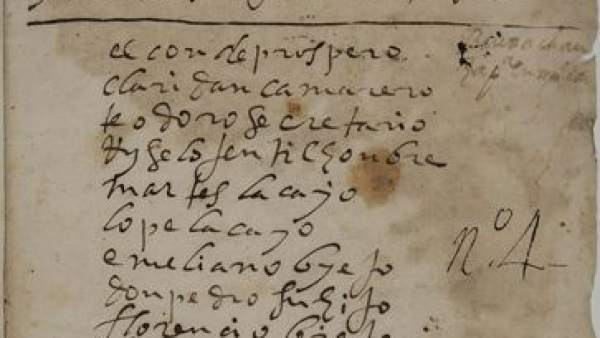 el conde prospero
claridan camarero
teodoro secretario
tyselo jentilhonbre
martes lacayo
lope lacayo
emeliano byejo
don pedro su hijo
florencio
nº 4